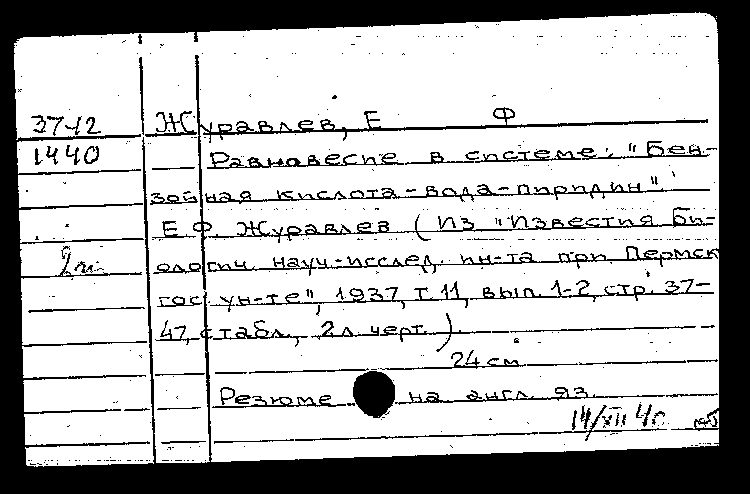 37-12 Журавлев, Е Ф
1440 Равновесие в системе: "Бен-
зойная кислота-вода-пиридин".
Е.Ф. Журавлев (Из "Известия Би-
2 ологич. науч-исслед. ин-та при Пермск
гос ун-те", 1937, т.11, вып. 1-2, стр. 37-
47, с табл., 2л черт.).
24 см
Резюме на англ. яз.
14/XII 40